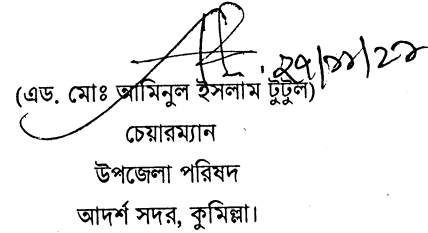 (এড. মোঃ আমিনুল ইসলাম টুটুল)
চেয়ারম্যান
উপজেলা পরিষদ
আদর্শ সদর, কুমিল্লা।